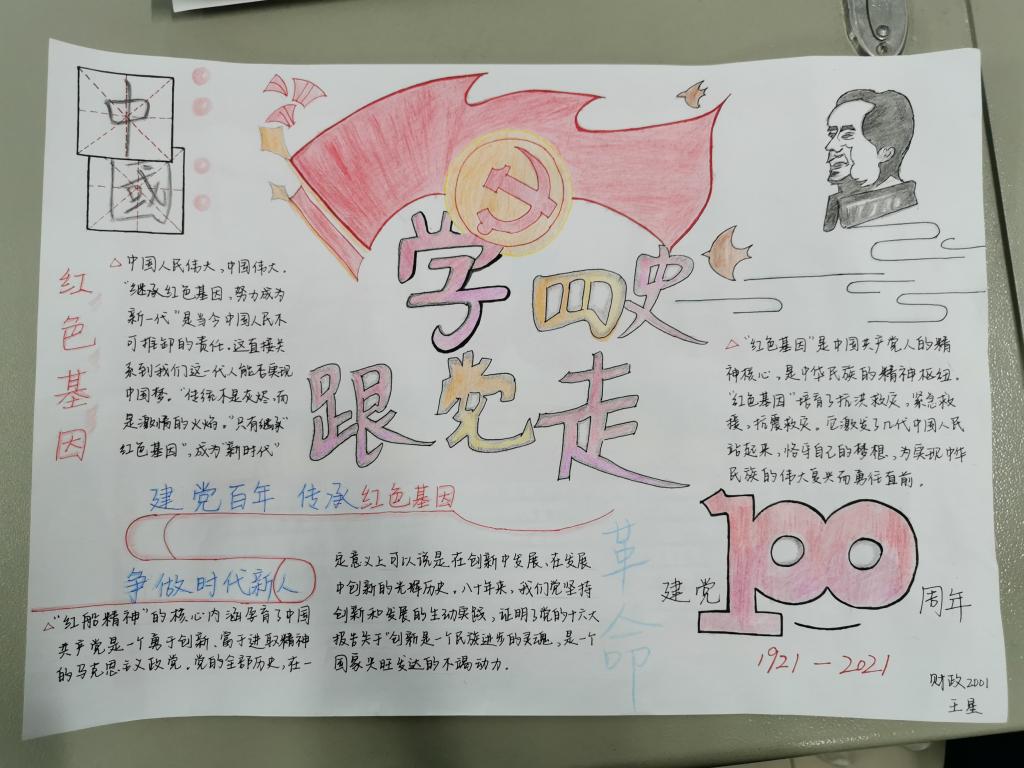 中
國
学四史
跟党走
红色基因
△中国人民伟大,中国伟大.
"继承红色基因,努力成为
新一代"是当今中国人民不
可推卸的责任.这直接关
系到我们这一代人能否实现
中国梦。"传统不是灰烬,而
是激情的火焰。"只有继承"
红色基因",成为"新时代"
△"红色基因"是中国共产党人的精
神核心,是中华民族的精神枢纽.
"红色基因"培育了抗洪救灾,紧急救
援,抗震救灾。它激发了几代中国人民
站起来,恪守自己的梦想,为实现中华
民族的伟大复兴而勇往直前.
建党百年 传承红色基因
争做时代新人
△"红船精神"的核心内涵孕育了中国
共产党是一个勇于创新、富于进取精神
的马克思主义政党。党的全部历史,在一
定意义上可以说是在创新中发展、在发展
中创新的光辉历史。八十年来,我们党坚持
创新和发展的生动实践,证明了党的十六大
报告关于"创新是一个民族进步的灵魂,是一个
国家兴旺发达的不竭动力.
革命
建党100周年
1921-2021
财政2001
王星